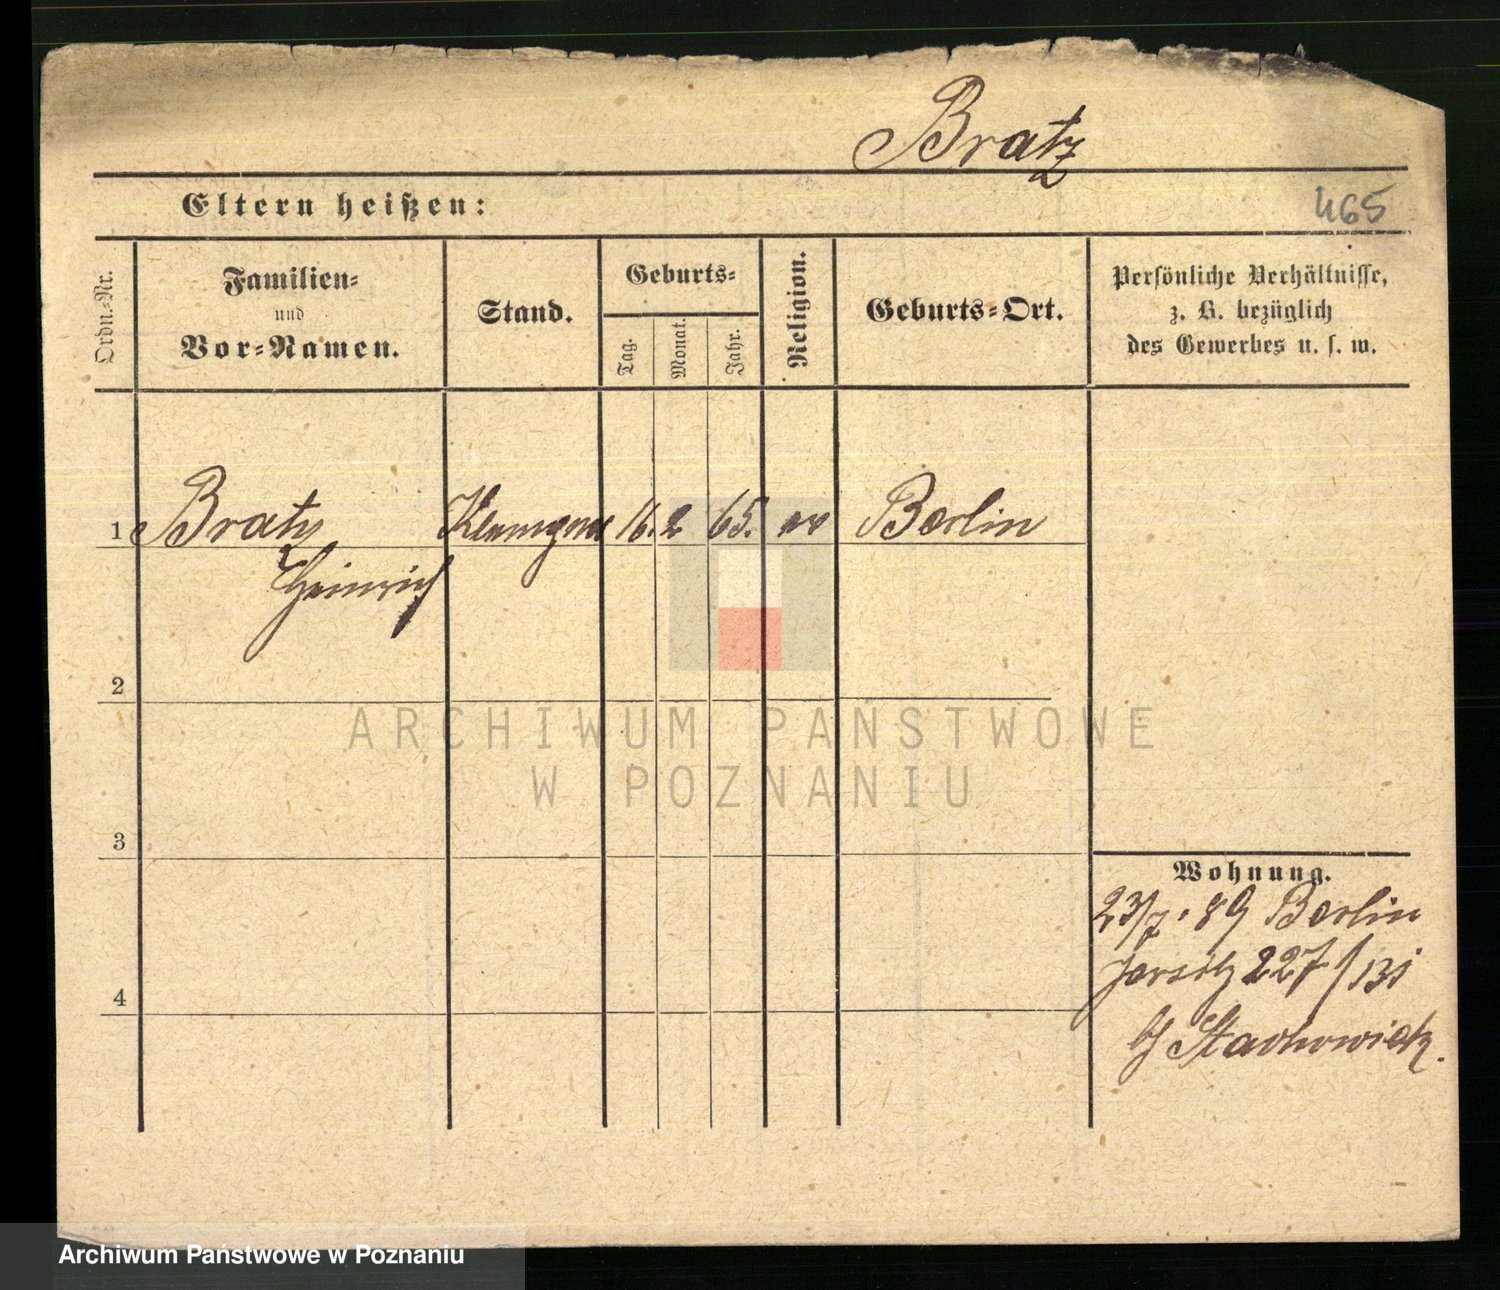 Bratz
Eltern heißen:
465
Ordn.-Nr.
Familien-
und
Vor-Namen.
Stand.
Geburts-
Tag.
Monat.
Jahr.
Religion.
Geburts-Ort.
Persönliche Verhältnisse,
z. B. bezüglich
des Gewerbes u. s. w.
1 Bratz 16. 2 65. ev Berlin
Heinrich
2
ARCHIWUM PAŃSTWOWE
W POZNANIU
3
4
Wohnung.
23/7. 89 Berlin
Jersitz 227/131
b/ Stachowiak.
Archiwum Państwowe w Poznaniu